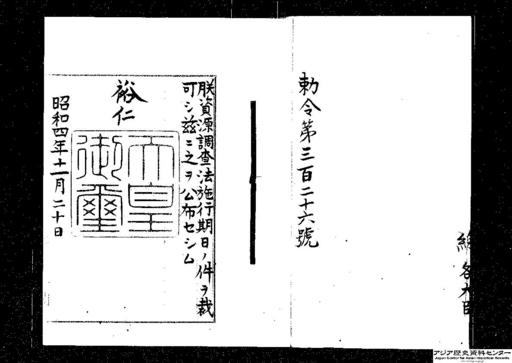 勅令第三百二十六號
朕資源調査法施行期日ノ件ヲ裁
可シ茲ニ之ヲ公布セシム
裕仁
天皇
御璽
昭和四年十一月二十日
アジア歴史資料センター
Japan Center for Asian Historical Records